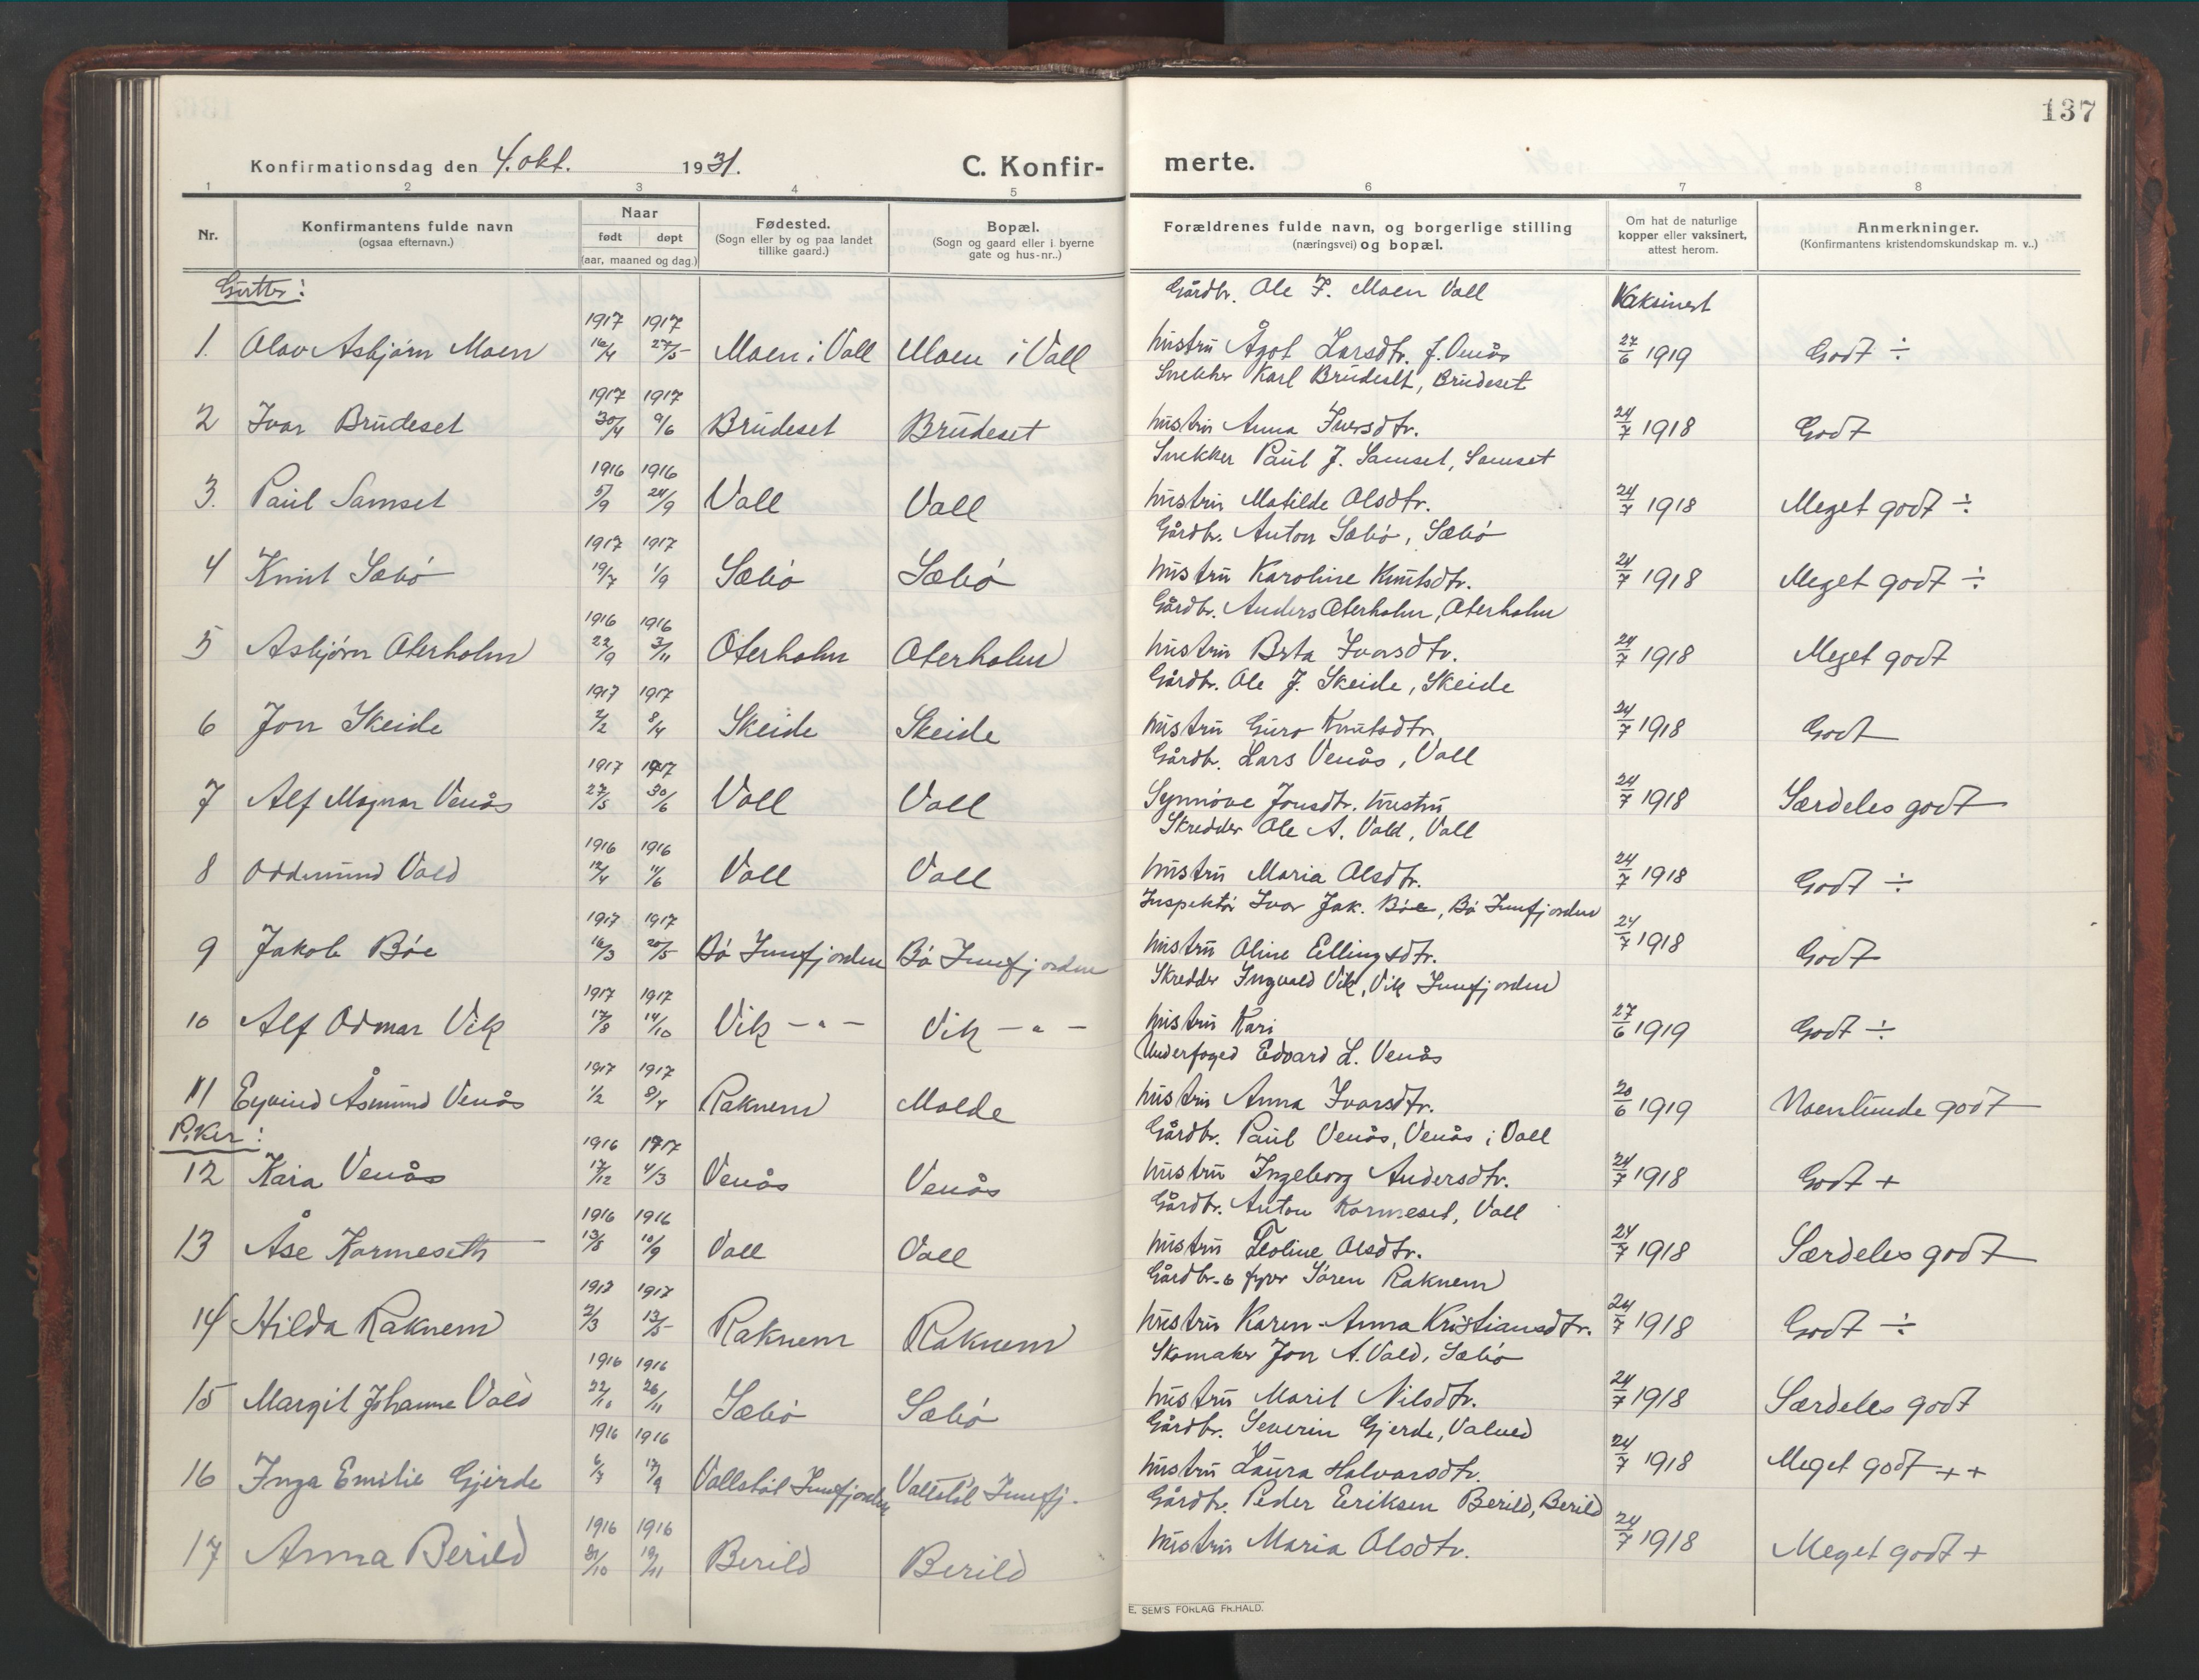 137
Konfirmationsdag den 4. okt. 1931. C. Konfirmerte.
1 2 3 4 5 6 7 8
Nr.
Konfirmantens fulde navn
(ogsaa efternavn.)
Naar
født døpt
(aar, maaned og dag.)
Fødested.
(Sogn eller by og paa landet
tillike gaard.)
Bopæl.
(Sogn og gaard eller i byerne
gate og hus-nr..)
Forældrenes fulde navn, og borgerlige stilling
(næringsvei) og bopæl.
Om hat de naturlige
kopper eller vaksinert,
attest herom.
Anmerkninger.
(Konfirmantens kristendomskundskap m. v..)
Gutter:
Gårdbr. Ole F. Moen Voll Vaksinert
1917 1917
1. Olav Asbjørn Moen 16/4 27/5 Moen i Voll Moen i Voll hustru Ågot Larsdtr. f. Venås 27/6 1919 Godt ÷
Snekker Karl Brudeset, Brudeset
1917 1917
2 Ivar Brudeset 30/4 9/6 Brudeset Brudeset hustru Anna Iversdtr. 24/7 1918 Godt
Snekker Paul J. Samset, Samset
1916 1916
3. Paul Samset 5/9 24/9 Voll Voll hustru Matilde Olsdtr. 24/7 1918 Meget godt ÷
Gårdbr. Anton Sæbø, Sæbø
1917 1917
4 Knut Sæbø 19/7 1/9 Sæbø Sæbø hustru Karoline Knutsdtr. 24/7 1918 Meget godt ÷
Gårdbr. Anders Oterholm, Oterholm
1916 1916
5 Asbjørn Oterholm 22/9 3/11 Oterholm Oterholm hustru Brta Ivarsdtr. 24/7 1918 Meget godt
Gårdbr. Ole J. Skeide, Skeide
1917 1917
6 Jon Skeide 2/2 8/4 Skeide Skeide hustru Guro Knutsdtr. 24/7 1918 Godt
Gårdbr. Lars Venås, Voll
1917 1917
7 Alf Magnar Venås 27/5 30/6 Voll Voll Synnøve Jonsdtr. hustru 24/7 1918 Særdeles godt
Skredder Ole A. Vold, Voll
1916 1916
8 Oddmund Vold 12/4 11/6 Voll Voll hustru Maria Olsdtr. 24/7 1918 Godt ÷
Inspektør Ivar Jak. Bøe, Bø Innfjorden
1917 1917
9 Jakob Bøe 16/3 20/5 Bø Innfjorden Bø Innfjorden hustru Oline Ellingsdtr. 24/7 1918 Godt
Skredder Ingvald Vik, Vik Innfjorden
1917 1917
10 Alf Odmar Vik 17/8 14/10 Vik —"— Vik —"— hustru Kari 27/6 1919 Godt ÷
Underfoged Edvard L. Venås
1917 1917
11 Eyvind Åsmund Venås 1/2 8/4 Raknem Molde hustru Anna Ivarsdtr. 20/6 1919 Noenlunde godt
Piker:
Gårdbr. Paul Venås, Venås i Voll
1916 1917
12 Kåra Venås 17/12 4/3 Venås Venås hustru Ingeborg Andersdtr. 24/7 1918 Godt +
Gårdbr. Anton Kormeset, Voll
1916 1916
13 Åse Kormeseth 13/8 10/9 Voll Voll hustru Teoline Olsdtr. 24/7 1918 Særdeles godt
Gårdbr. Søren Raknem
1917 1917
14 Hilda Raknem 2/3 13/5 Raknem Raknem hustru Karen-Anna Kristiansdtr. 24/7 1918 Godt ÷
Skomaker Jon A. Vold, Sæbø
1916 1916
15 Margit Johanne Vold 22/10 26/11 Sæbø Sæbø hustru Marit Nilsdtr. 24/7 1918 Særdeles godt
Gårdbr. Severin Gjerde,
1916 1916
16 Inga Emilie Gjerde 6/7 17/9 Vollstøl Innfjorden Vollstøl Innfj. hustru Laura Halvorsdtr. 24/7 1918 Meget godt ++
Gårdbr. Peder Eriksen Berild, Berild
1916 1916
17 Anna Berild 31/10 19/11 Berild Berild hustru Maria Olsdtr. 24/7 1918 Meget godt +
E. SEM'S FORLAG FR.HALD.